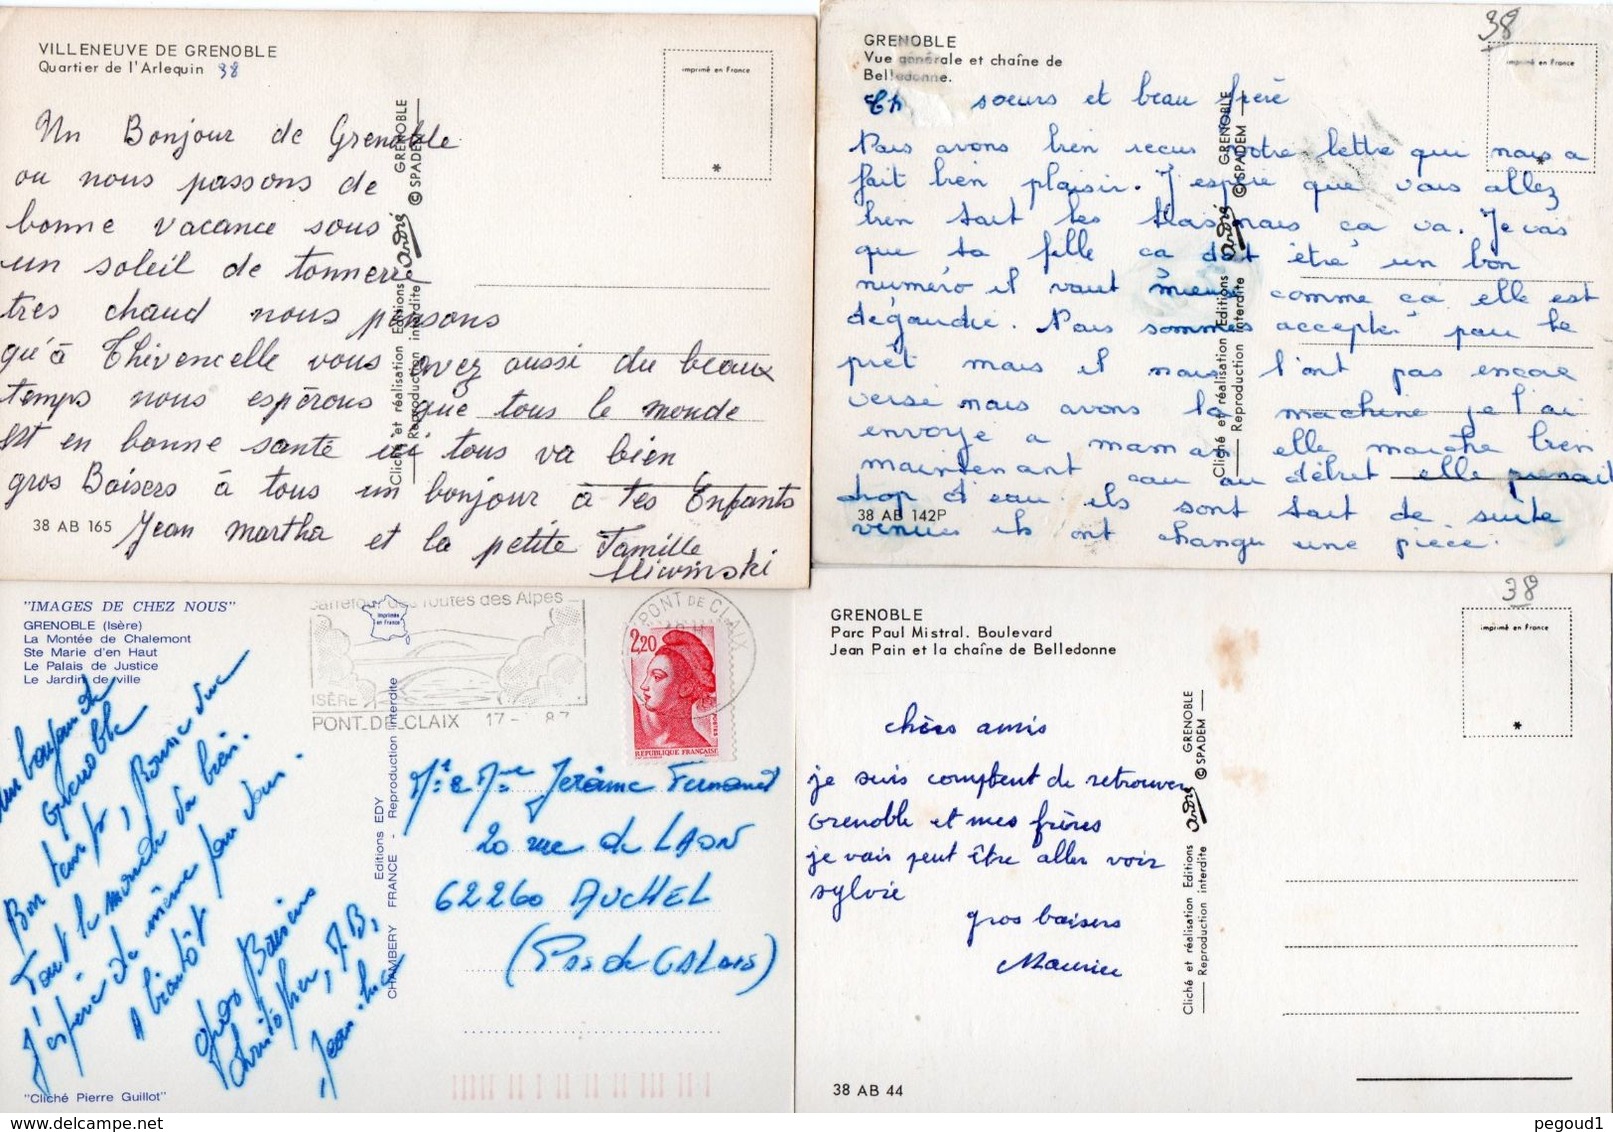 VILLENEUVE DE GRENOBLE
Quartier de l'Arlequin 38
imprimé en France
*
Un Bonjour de Grenoble
ou nous passons de
bonne vacance sous
un soleil de tonnerre
tres chaud nous pensons
qu'à Thivencelle vous avez aussi du beaux
temps nous espérous que tous le monde
est en bonne santé ici tous va bien
gros Baisers à tous un bonjour à tes Enfants
Jean Martha et la petite Famille
Sliwinski
38 AB 165
Cliché et réalisation Editions André GRENOBLE
Reproduction interdite © SPADEM
GRENOBLE
Vue générale et chaîne de
Belledonne.
38
imprimé en France
*
Ch soeurs et beau frère
Nous avons bien recus votre lettre qui nous a
fait bien plaisir. J'espère que vous allez
bien tout les mais ça va. Je vois
que ta fille ca doit être un bon
numéro il vaut mieux comme ça elle est
dégourdie. Nous sommes accepter pour le
prêt mais il nous l'ont pas encore
versé nous avons la machine je l'ai
envoyé a maman elle marche bien
maintenant car au début elle prenait
trop d'eau ils sont tout de suite
venues ils ont changer une pièce.
38 AB 142P
Cliché et réalisation Editions André GRENOBLE
Reproduction interdite © SPADEM
"IMAGES DE CHEZ NOUS"
GRENOBLE (Isère)
La Montée de Chalemont
Ste Marie d'en Haut
Le Palais de Justice
Le Jardin de ville
Imprimée
en France
Carrefour des routes des Alpes
ISÈRE
PONT.DE.CLAIX 17- 87
PONT DE CLAIX
2,20
POSTES
REPUBLIQUE FRANÇAISE
Un bonjour de
Grenoble
Bon temps, Bonne vue
Tout le monde va bien.
J'espère de même pour vous.
A bientôt
Gros Baisers
Christopher, M.B,
Jean-Luc
Mr & Mme Jerôme Fernand
20 rue de LAON
62260 AUCHEL
(Pas de CALAIS)
Editions EDY
CHAMBERY FRANCE - Reproduction interdite
"Cliché Pierre Guillot"
GRENOBLE
Parc Paul Mistral. Boulevard
Jean Pain et la chaîne de Belledonne
38
imprimé en France
*
chèrs amis
je suis comptent de retrouver
Grenoble et mes frères
je vais peut être aller voir
sylvie
gros baisers
Maurice
Cliché et réalisation Editions André GRENOBLE
Reproduction interdite © SPADEM
38 AB 44
pegoud1